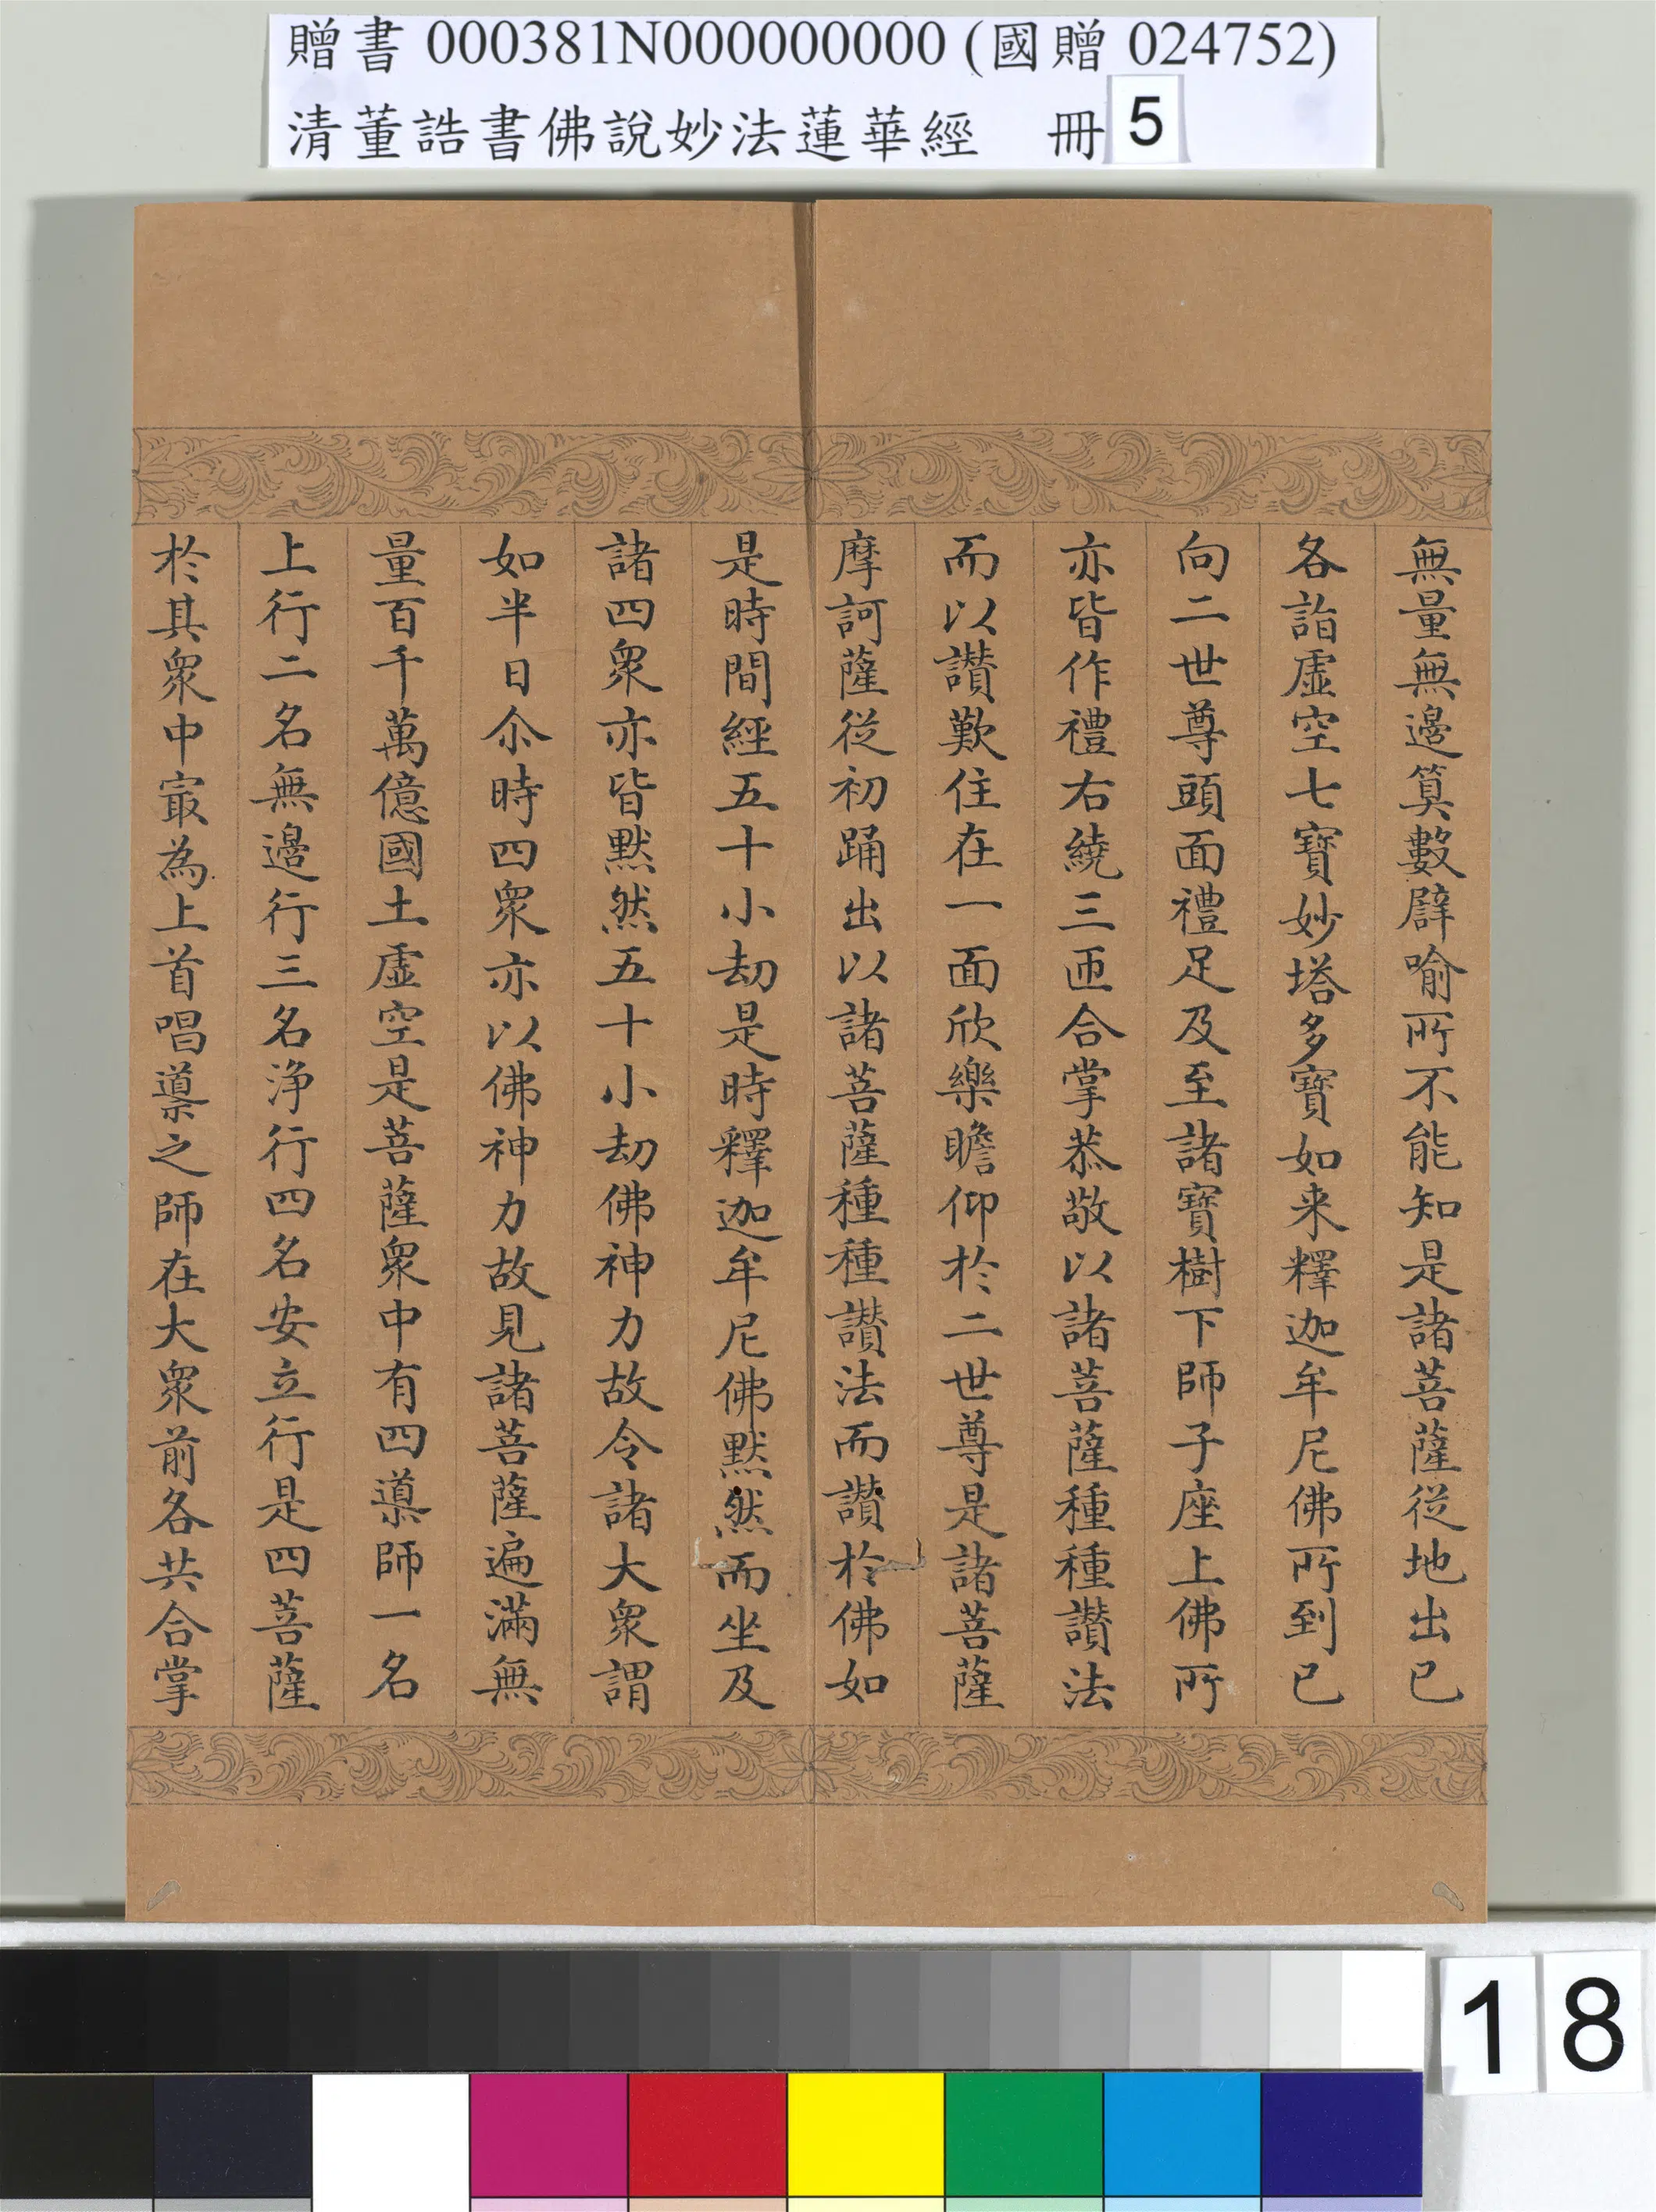 贈書 000381N000000000 (國贈 024752)
清董誥書佛說妙法蓮華經 冊 5
無量無邊算數譬喻所不能知是諸菩薩從地出已
各詣虛空七寶妙塔多寶如来釋迦牟尼佛所到已
向二世尊頭面禮足及至諸寶樹下師子座上佛所
亦皆作禮右繞三匝合掌恭敬以諸菩薩種種讚法
而以讚歎住在一面欣樂瞻仰於二世尊是諸菩薩
摩訶薩從初踊出以諸菩薩種種讚法而讚於佛如
是時間經五十小劫是時釋迦牟尼佛默然而坐及
諸四衆亦皆默然五十小劫佛神力故令諸大衆謂
如半日尒時四衆亦以佛神力故見諸菩薩遍滿無
量百千萬億國土虛空是菩薩衆中有四導師一名
上行二名無邊行三名淨行四名安立行是四菩薩
於其衆中㝡為上首唱導之師在大衆前各共合掌
18